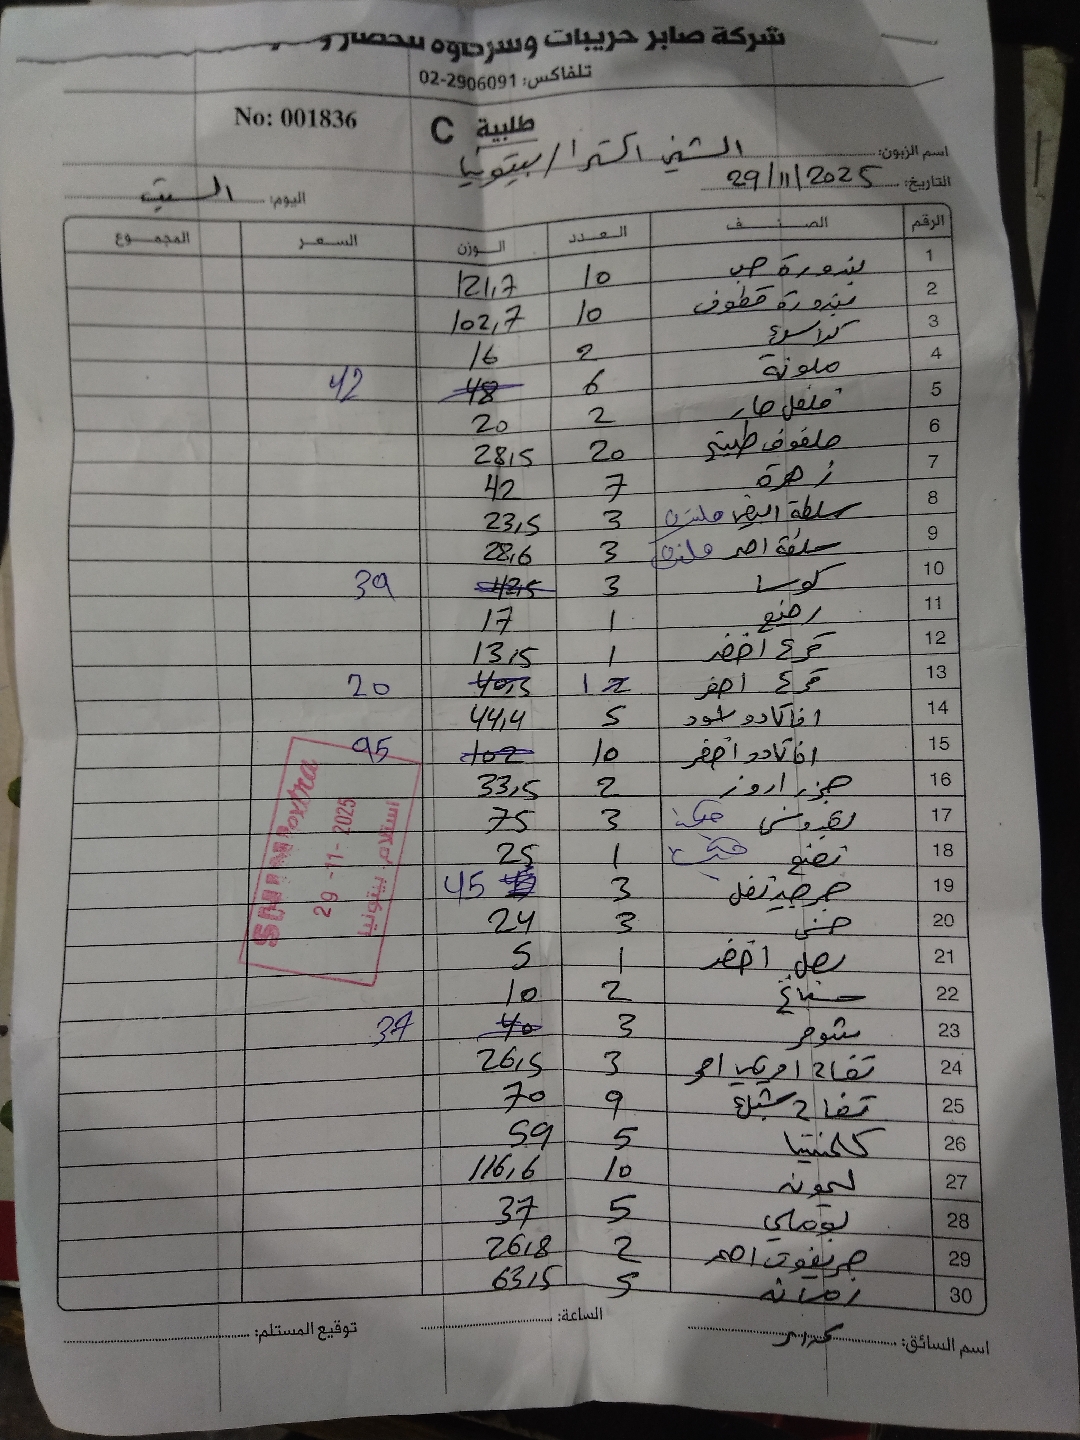 شركة صابر حريبات وسرحاوه للخضار و
تلفاكس: 02-2906091
No: 001836
طلبية C
اسم الزبون: الشني اكسترا / بيتونيا
التاريخ: 29/11/2025
اليوم: السبت
الرقم الصنف العدد الوزن السعر المجموع
1 بندورة حب 10 121,7
2 بندورة قطوف 10 102,7
3 2 16
4 ملونة 6 48 42
5 فلفل حار 2 20
6 ملفوف 20 28,5
7 زهرة 7 42
8 سلطة ابيض ملفوف 3 23,5
9 سلطة احمر ملفوف 3 28,6
10 كوسا 3 42,5 39
11 1 17
12 قرع اخضر 1 13,5
13 قرع اصفر 1 2 40,5 20
14 افاكادو اسود 5 44,4
15 افاكادو اخضر 10 102 95
16 جزر اروز 2 33,5
17 بقدونس 3 75
18 نعنع 1 25
19 3 45
20 خس 3 24
21 بصل اخضر 1 5
22 سبانخ 2 10
23 3 40 37
24 تفاح امريكي احمر 3 26,5
25 تفاح 9 70
26 كلمنتينا 5 59
27 ليمونه 10 116,6
28 بوملي 5 37
29 جريفوت احمر 2 26,8
30 رمانه 5 63,5
SHINI extra
29-11-2025
استلام بيتونيا
اسم السائق:
الساعة:
توقيع المستلم: